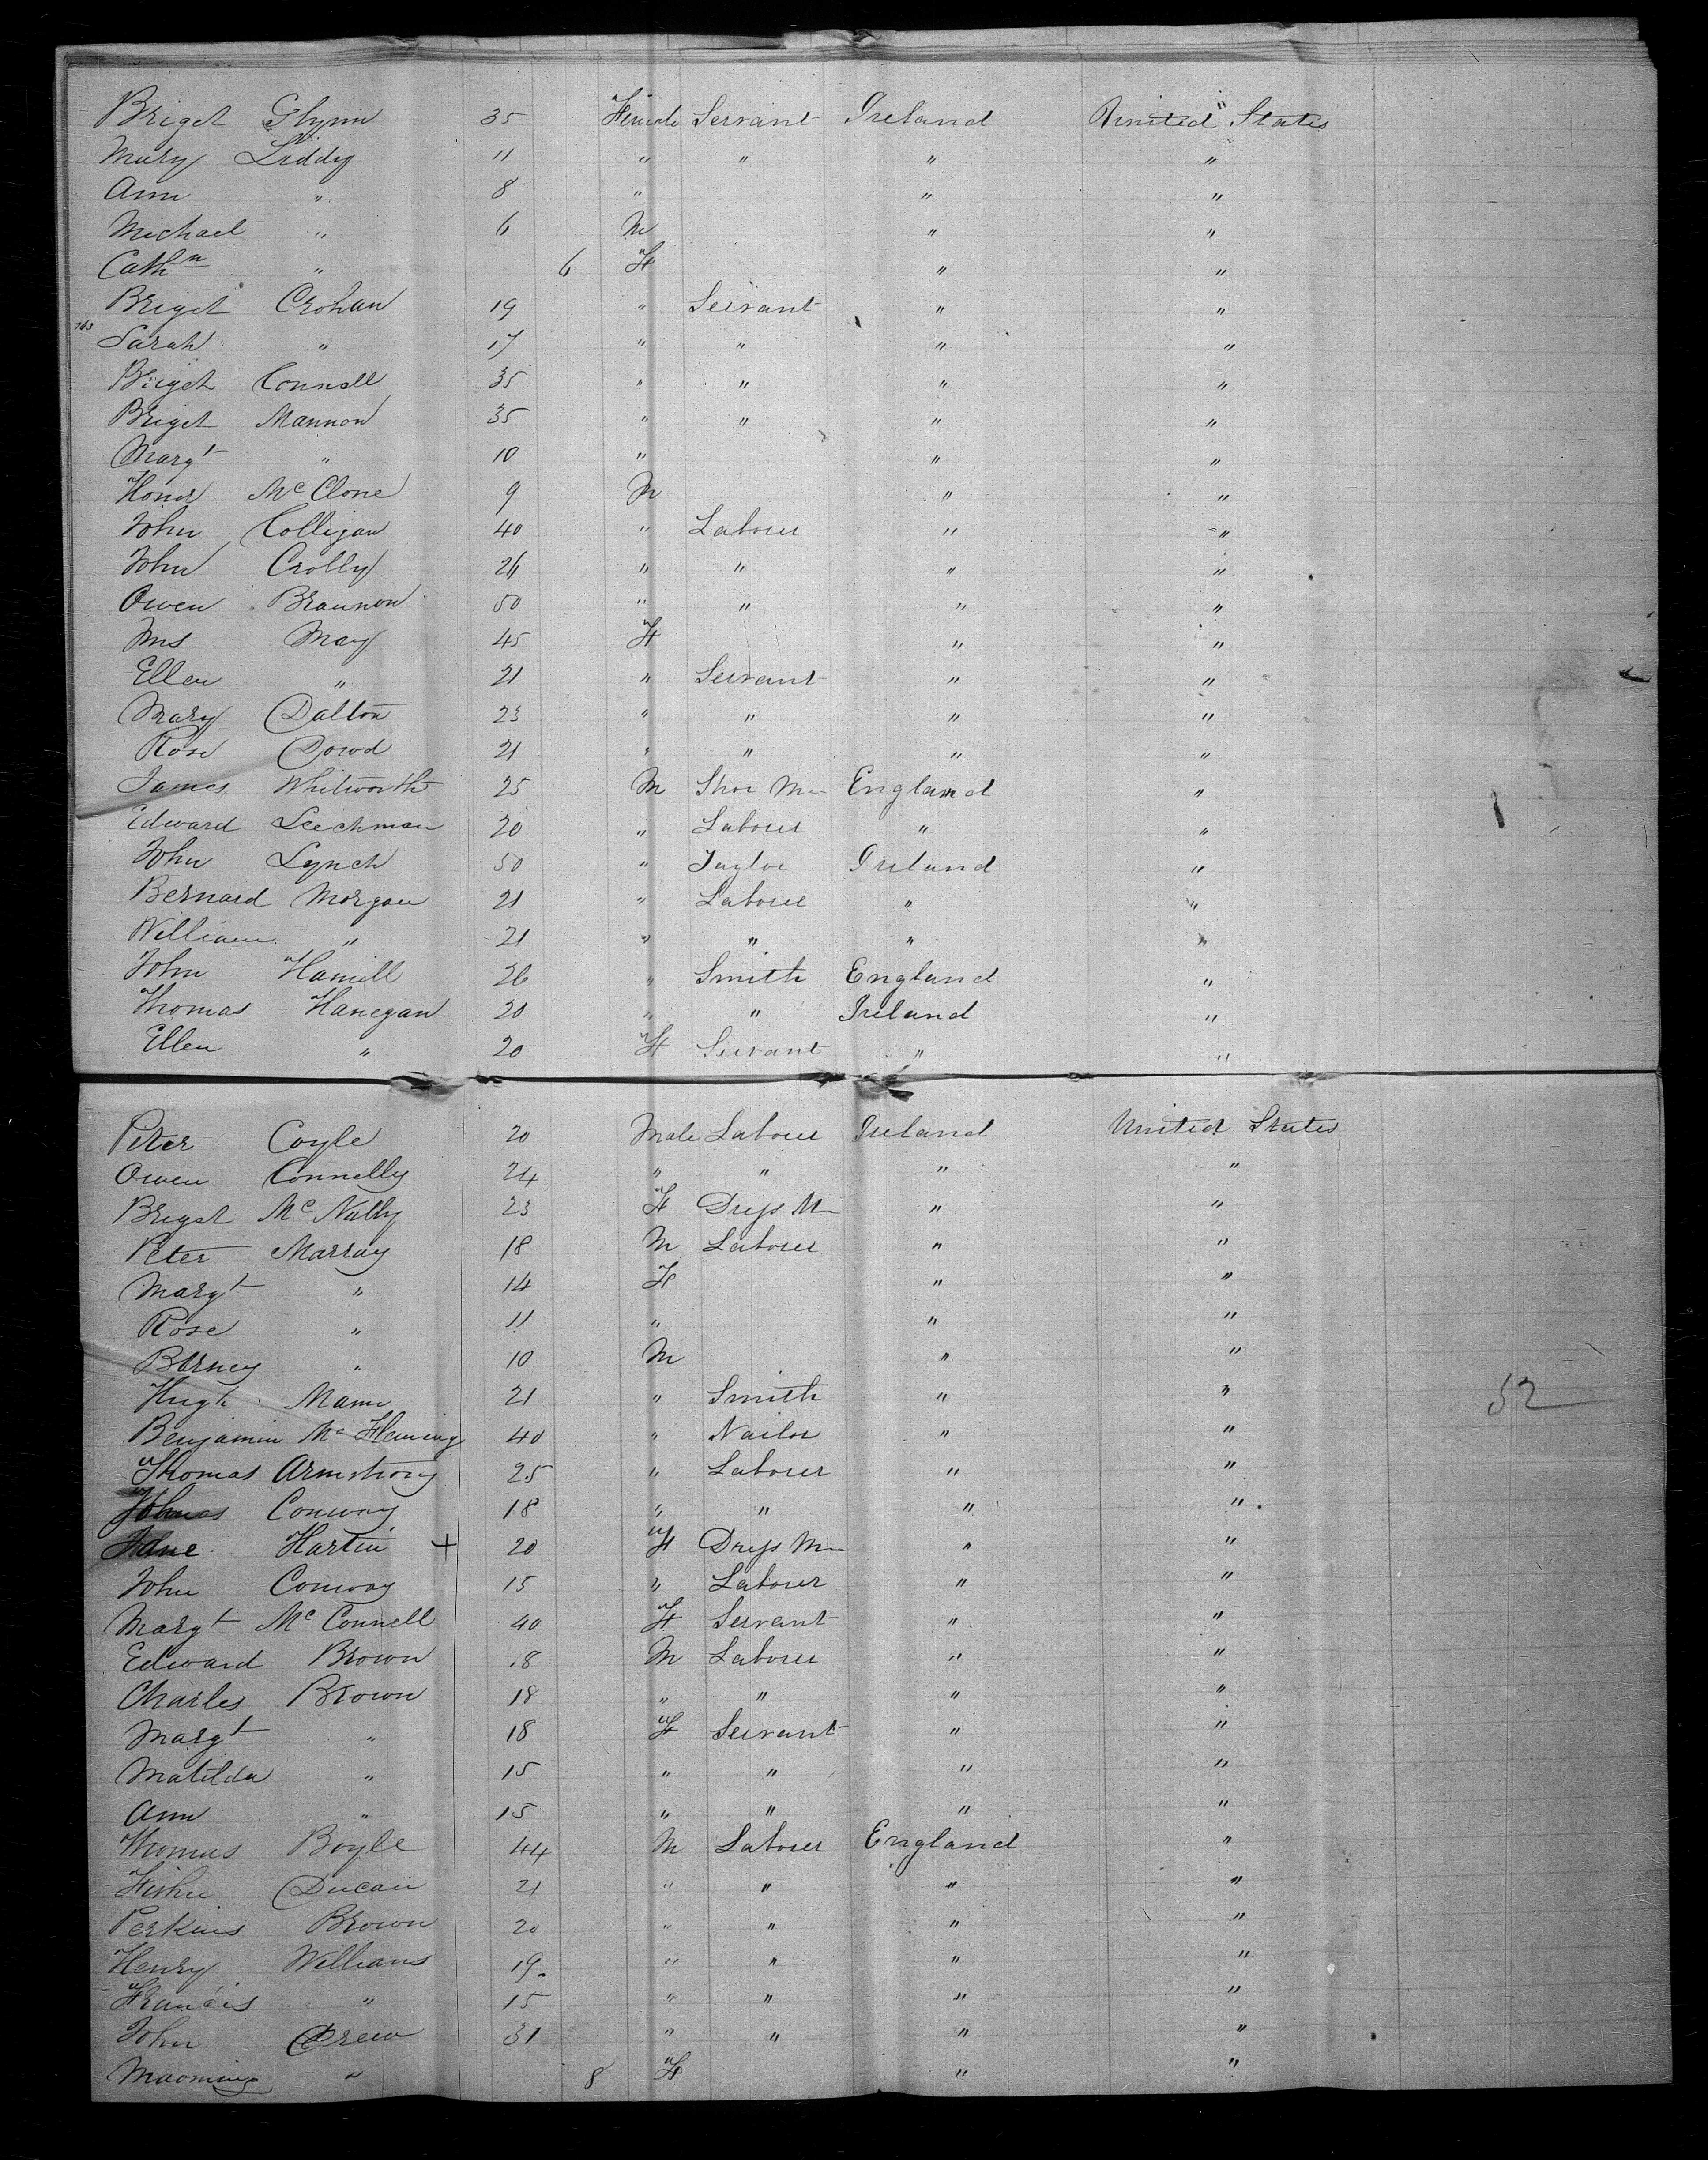 Briget Glynn 35 Female Servant Ireland United States
Mary Liddy 11 " " " "
Ann " 8 " " "
Michael " 6 M " "
Cathn " 6 F " "
Briget Crohan 19 " Servant " "
763 Sarah " 17 " " " "
Briget Connell 35 " " " "
Briget Mannon 35 " " " "
Margt " 10 " " "
Honor Mc Clone 9 M " "
John Colligan 40 " Laborer " "
John Crolly 24 " " " "
Owen Brannon 50 " " " "
Mrs May 45 F " "
Ellen " 21 " Servant " "
Mary Dalton 23 " " " "
Rose Dowd 21 " " " "
James Whitworth 25 M Shoe M England "
Edward Leechman 20 " Laborer " "
John Lynch 50 " Taylor Ireland "
Bernard Morgan 21 " Laborer " "
William " 21 " " " "
John Hamill 26 " Smith England "
Thomas Hanegan 20 " " Ireland "
Ellen " 20 F Servant " "
Peter Coyle 20 Male Laborer Ireland United States
Owen Connelly 24 " " " "
Briget Mc Nully 23 F Dress M " "
Peter Murray 18 M Laborer " "
Margt " 14 F " "
Rose " 11 " " "
Barney " 10 M " "
Hugh Mann 21 " Smith " " 52
Benjamin Mc Fleming 40 " Nailor " "
Thomas Armstrong 25 " Laborer " "
Conway 18 " " " "
Jane Hartin + 20 F Dress M " "
John Conway 15 " Laborer " "
Margt Mc Connell 40 F Servant " "
Edward Brown 18 M Laborer " "
Charles Brown 18 " " " "
Margt " 18 F Servant " "
Matilda " 15 " " " "
Ann " 15 " " " "
Thomas Boyle 44 M Laborer England "
Fisher 21 " " " "
Perkins Brown 20 " " " "
Henry Williams 19 " " " "
Francis " 15 " " " "
John Drew 31 " " " "
" 8 F " "